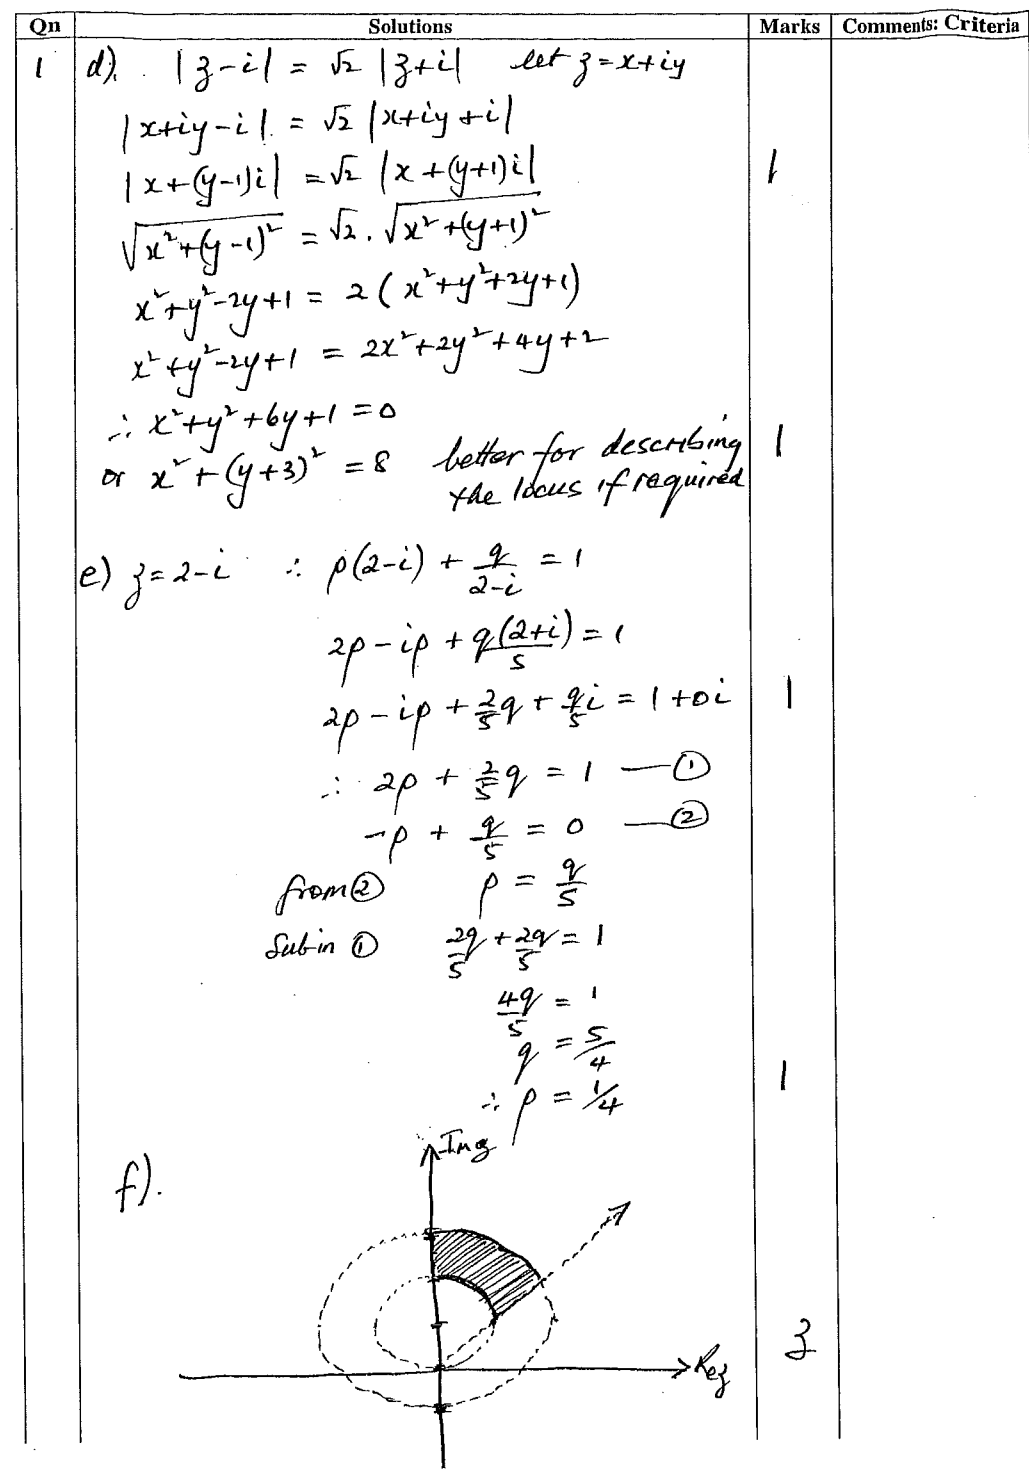 Qn Solutions Marks Comments: Criteria
1 d). |z-i| = √2 |z+i| let z=x+iy
|x+iy-i| = √2 |x+iy+i|
|x+(y-1)i| = √2 |x+(y+1)i| 1
√(x²+(y-1)²) = √2 . √(x²+(y+1)²)
x²+y²-2y+1 = 2(x²+y²+2y+1)
x²+y²-2y+1 = 2x²+2y²+4y+2
∴ x²+y²+6y+1=0
or x²+(y+3)² = 8 better for describing 1
the locus if required
e) z=2-i ∴ p(2-i) + q/(2-i) = 1
2p-ip + q(2+i)/5 = 1
2p-ip + 2/5 q + q/5 i = 1+0i 1
∴ 2p + 2/5 q = 1 —①
-p + q/5 = 0 —②
from② p = q/5
Sub in ① 2q/5 + 2q/5 = 1
4q/5 = 1
q = 5/4
∴ p = 1/4 1
f). Imz
3
Rez